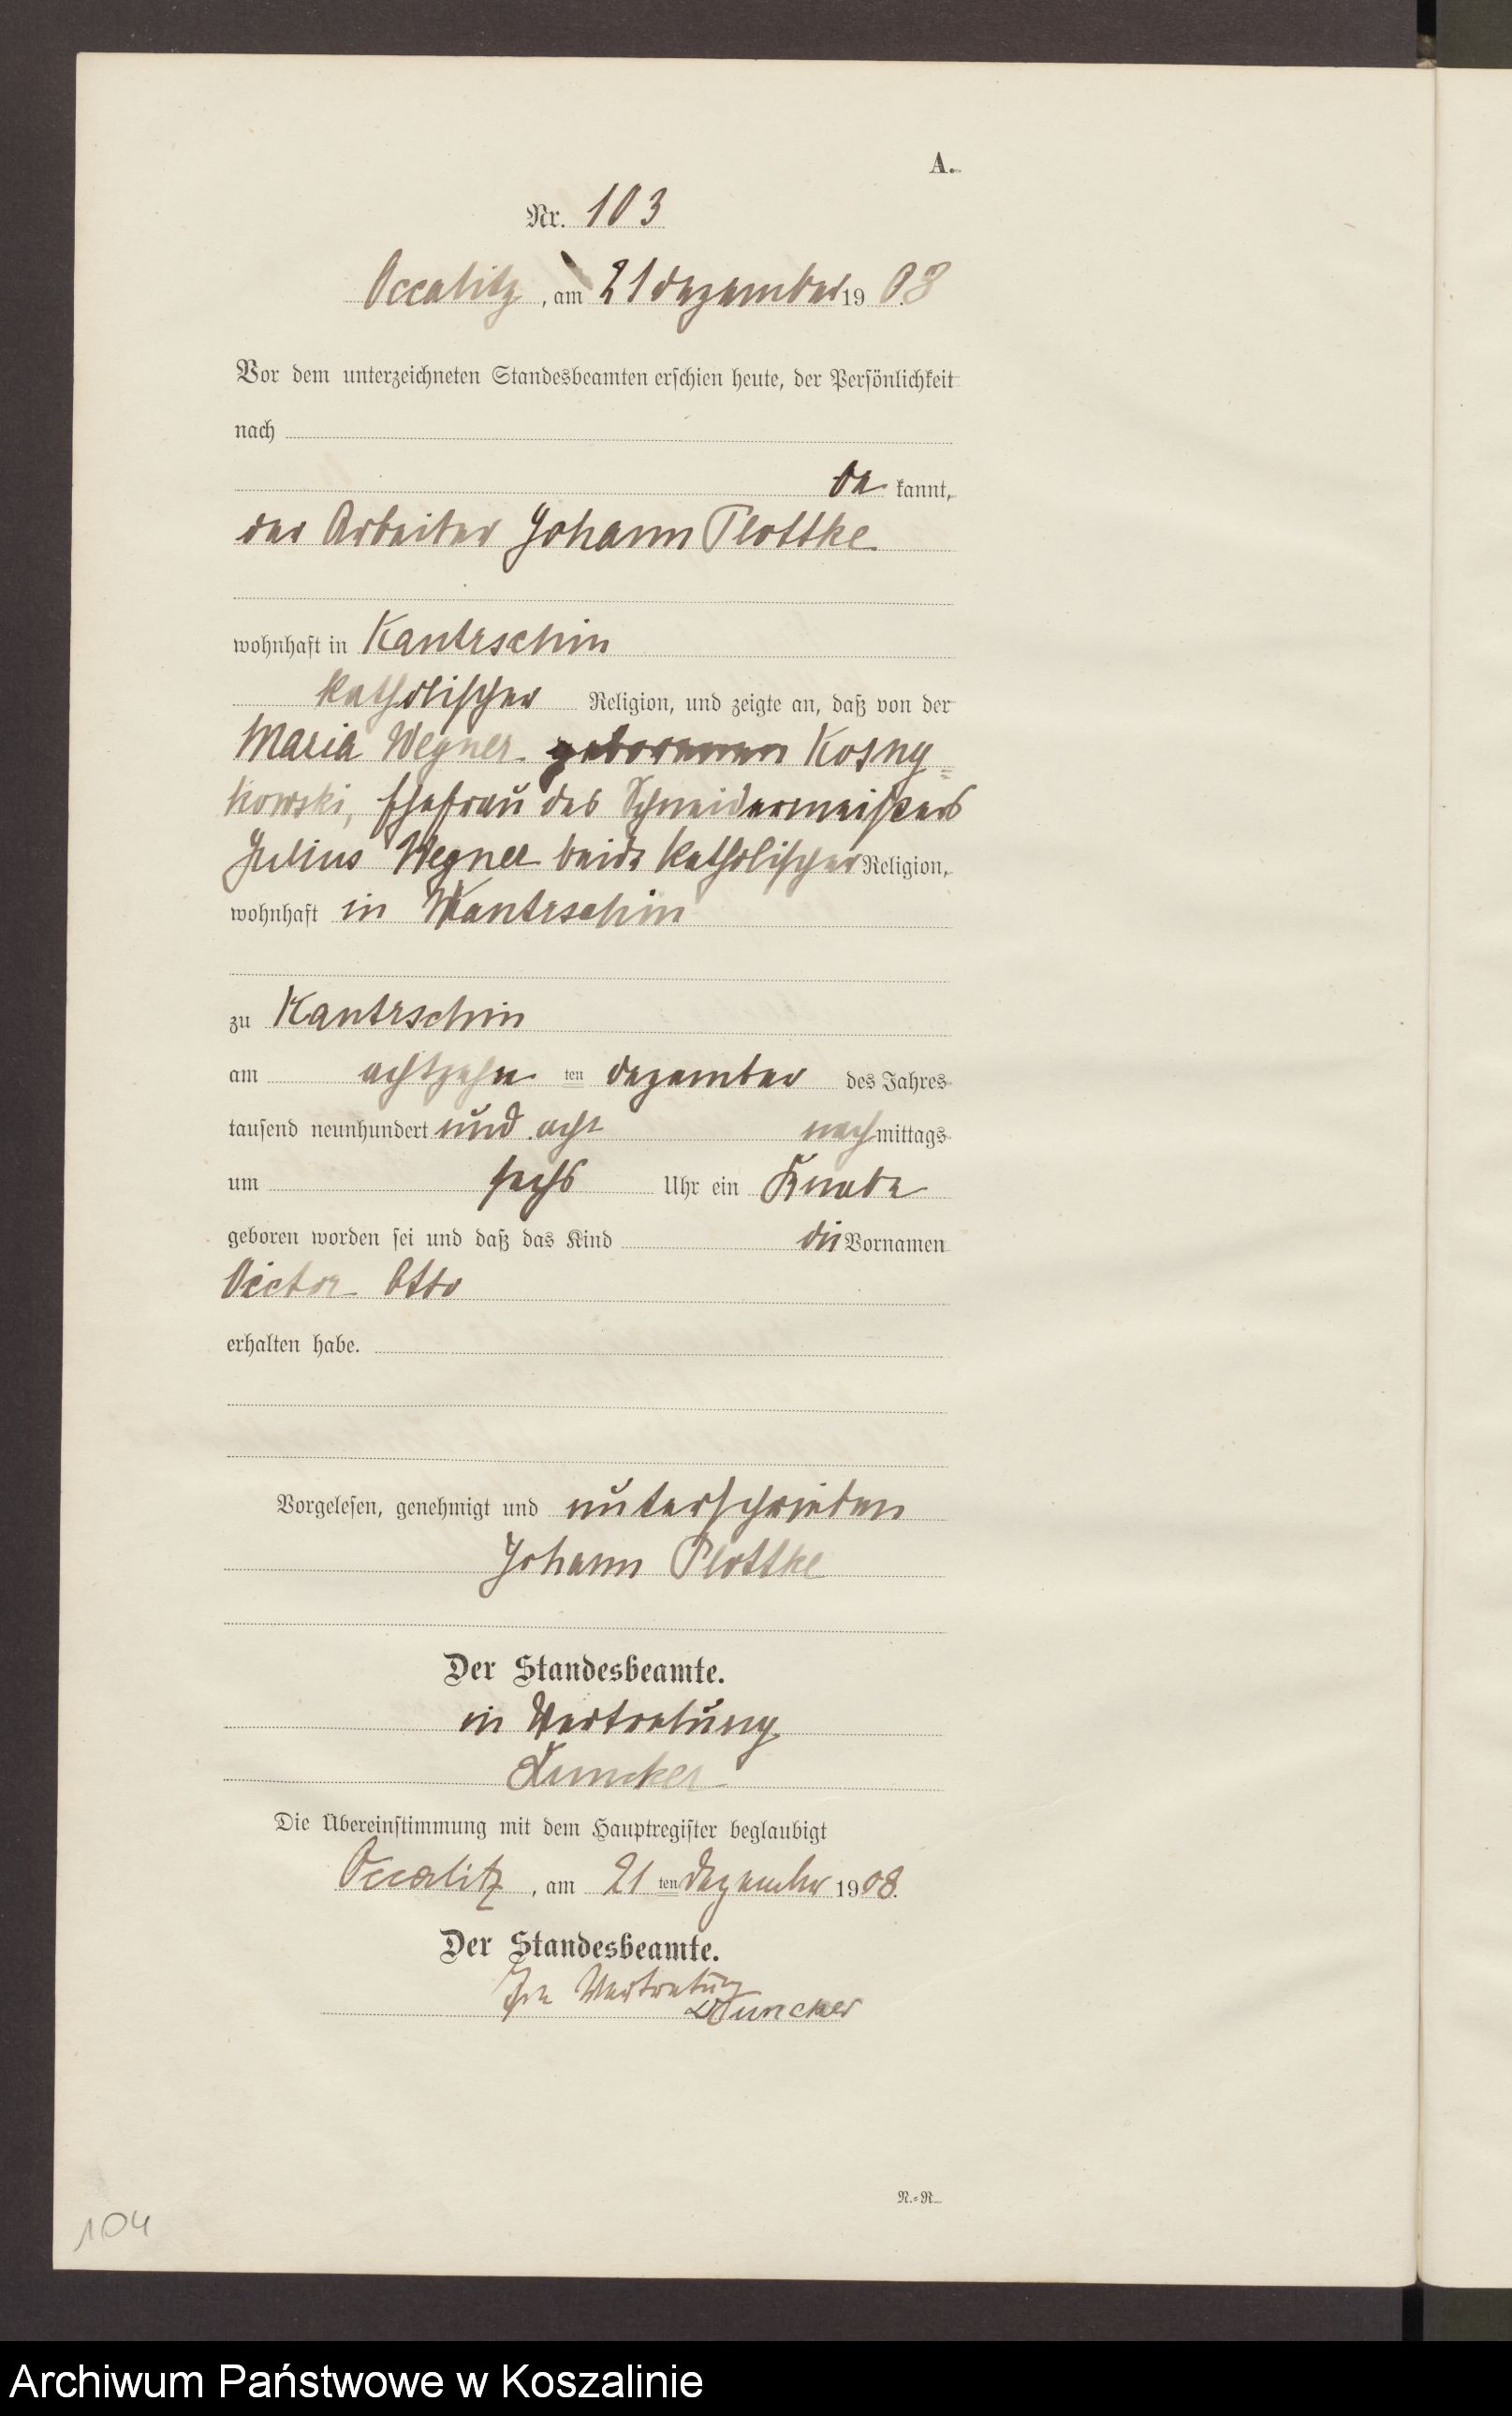 A.
Nr. 103
Occalitz, am 21 Dezember 1908
Vor dem unterzeichneten Standesbeamten erschien heute, der Persönlichkeit
nach
be kannt,
der Arbeiter Johann Plottke
wohnhaft in Kantrschin
katholischer Religion, und zeigte an, daß von der
Maria Wegner geborenen Kosny=
kowski, Ehefrau des Schneidermeisters
Julius Wegner beide katholischer Religion,
wohnhaft in Kantrschin
zu Kantrschin
am achtzehn ten Dezember des Jahres
tausend neunhundert und acht nach mittags
um sechs Uhr ein Knabe
geboren worden sei und daß das Kind die Vornamen
Victor Otto
erhalten habe.
Vorgelesen, genehmigt und unterschrieben
Johann Plottke
Der Standesbeamte.
in Vertretung
Duncker
Die Übereinstimmung mit dem Hauptregister beglaubigt
Occalitz, am 21 ten Dezember 1908.
Der Standesbeamte.
In Vertretung
Duncker
N.=R.
104
Archiwum Państwowe w Koszalinie